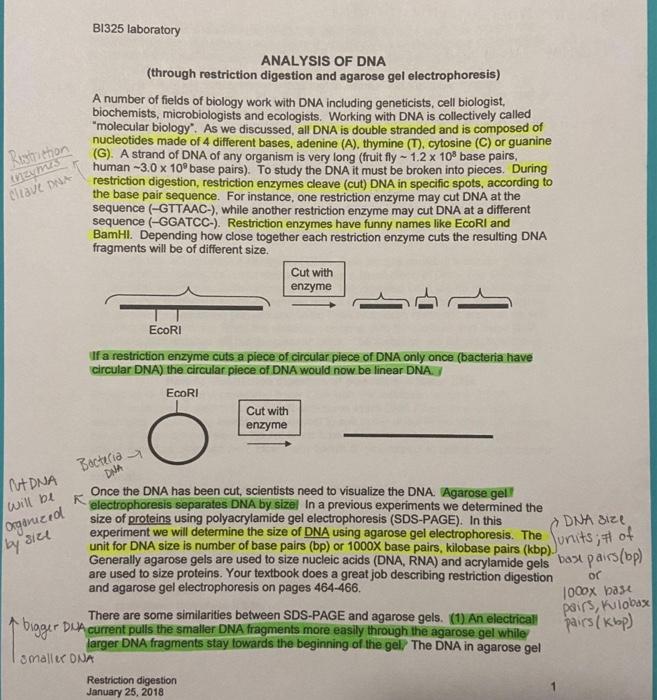 BI325 laboratory
ANALYSIS OF DNA
(through restriction digestion and agarose gel electrophoresis)
A number of fields of biology work with DNA including geneticists, cell biologist,
biochemists, microbiologists and ecologists. Working with DNA is collectively called
"molecular biology". As we discussed, all DNA is double stranded and is composed of
nucleotides made of 4 different bases, adenine (A), thymine (T), cytosine (C) or guanine
(G). A strand of DNA of any organism is very long (fruit fly ~ 1.2 x 10⁸ base pairs,
human ~3.0 x 10⁹ base pairs). To study the DNA it must be broken into pieces. During
restriction digestion, restriction enzymes cleave (cut) DNA in specific spots, according to
the base pair sequence. For instance, one restriction enzyme may cut DNA at the
sequence (-GTTAAC-), while another restriction enzyme may cut DNA at a different
sequence (-GGATCC-). Restriction enzymes have funny names like EcoRI and
BamHI. Depending how close together each restriction enzyme cuts the resulting DNA
fragments will be of different size.
Restriction
enzymes
cleave DNA
Cut with
enzyme
EcoRI
If a restriction enzyme cuts a piece of circular piece of DNA only once (bacteria have
circular DNA) the circular piece of DNA would now be linear DNA.
EcoRI
Cut with
enzyme
Bacteria
DNA
Once the DNA has been cut, scientists need to visualize the DNA. Agarose gel
electrophoresis separates DNA by size. In a previous experiments we determined the
size of proteins using polyacrylamide gel electrophoresis (SDS-PAGE). In this
experiment we will determine the size of DNA using agarose gel electrophoresis. The
unit for DNA size is number of base pairs (bp) or 1000X base pairs, kilobase pairs (kbp).
Generally agarose gels are used to size nucleic acids (DNA, RNA) and acrylamide gels
are used to size proteins. Your textbook does a great job describing restriction digestion
and agarose gel electrophoresis on pages 464-466.
DNA
will be
organized
by size
DNA size
units; # of
base pairs (bp)
or
1000x base
pairs, kulobase
pairs (kbp)
There are some similarities between SDS-PAGE and agarose gels. (1) An electrical
current pulls the smaller DNA fragments more easily through the agarose gel while
larger DNA fragments stay towards the beginning of the gel. The DNA in agarose gel
bigger DNA
smaller DNA
Restriction digestion
January 25, 2018
1